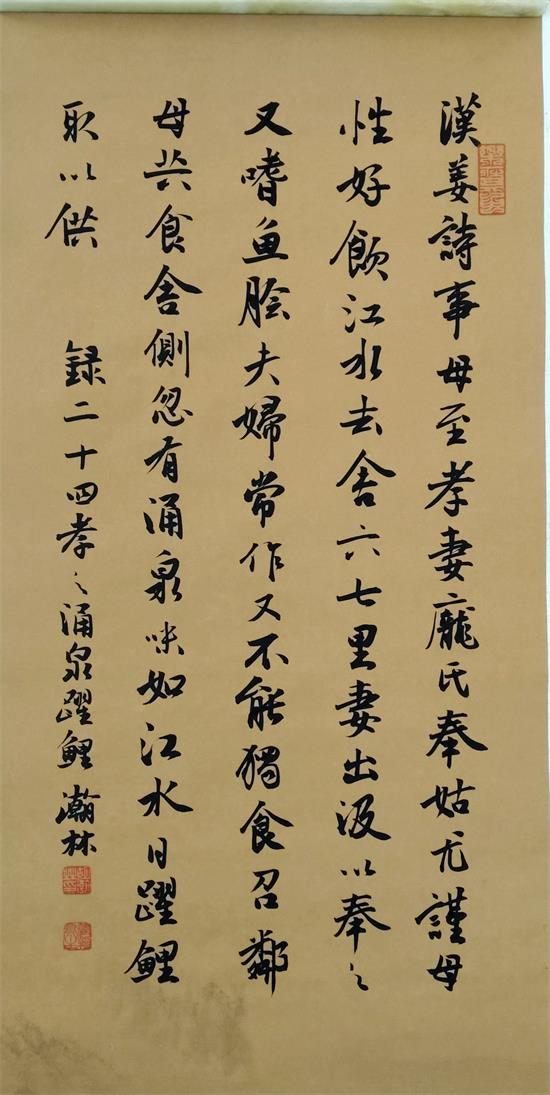 漢姜詩事母至孝妻龐氏奉姑尤謹母
性好飲江水去舍六七里妻出汲以奉之
又嗜鱼脍夫婦常作又不能獨食召鄰
母共食舍側忽有涌泉味如江水日躍鲤
取以供
録二十四孝之涌泉躍鲤瀚林